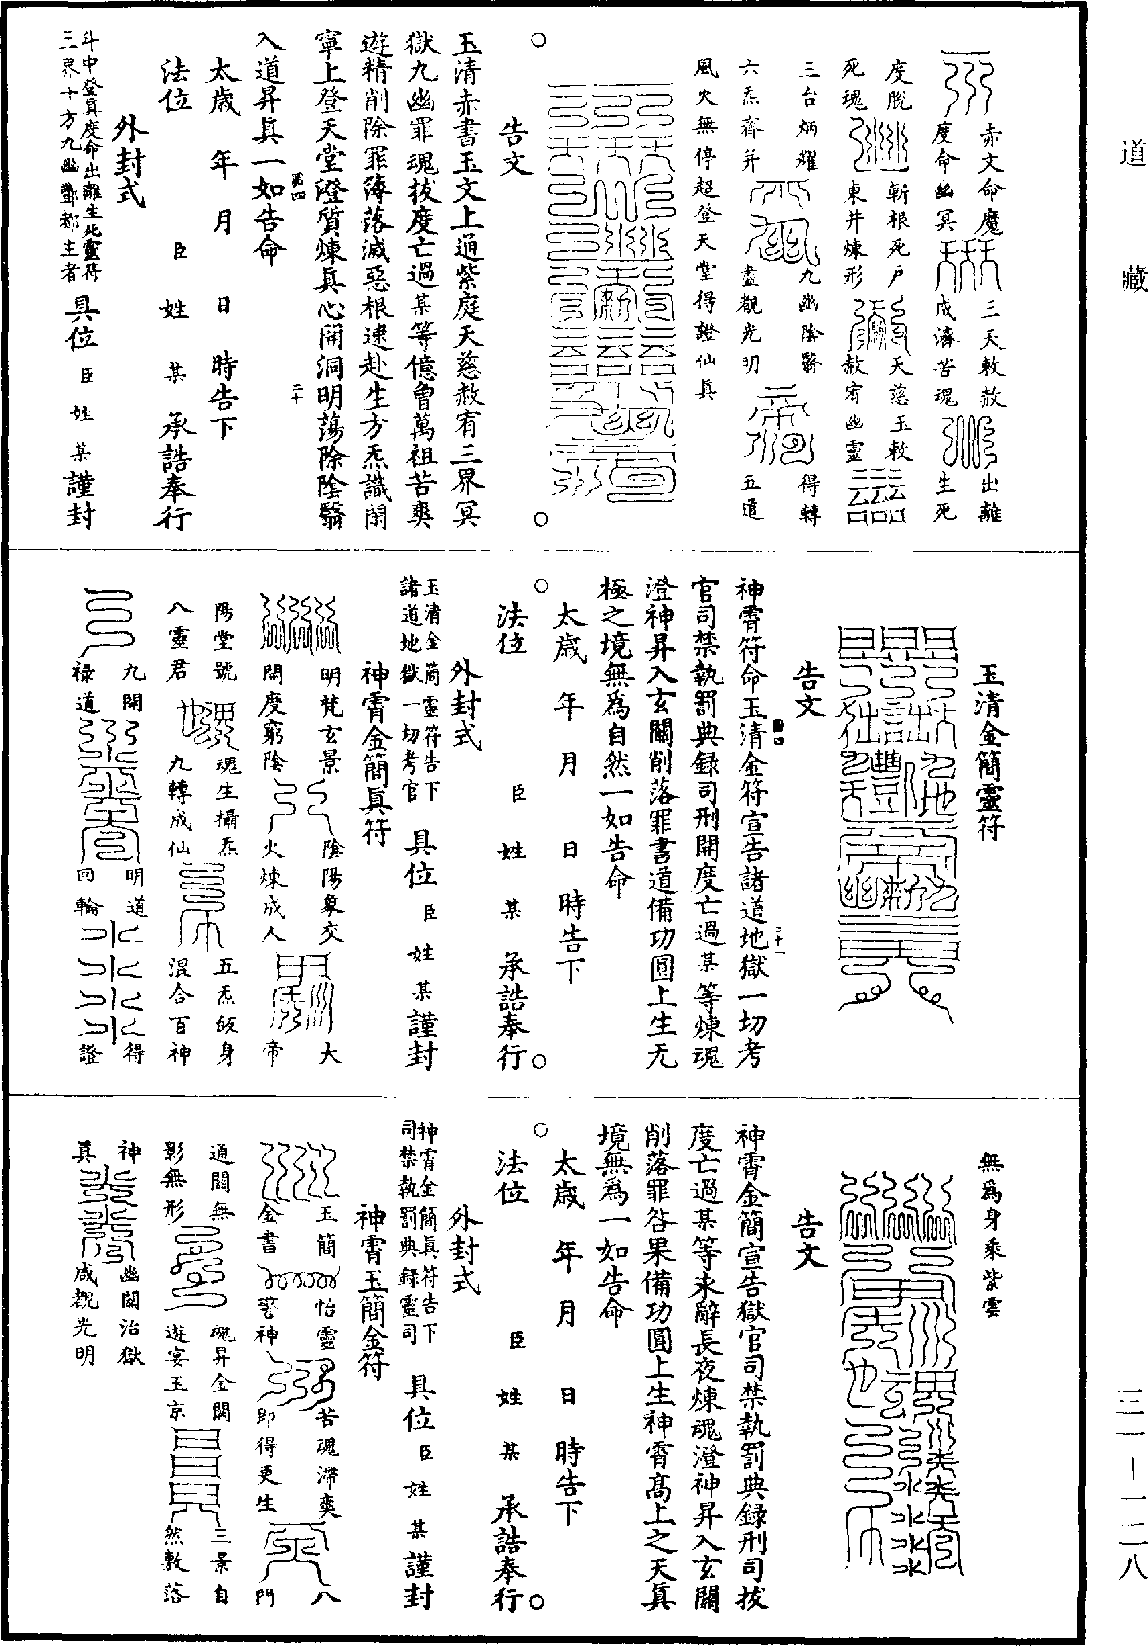 道藏
三一－一二八
赤文命魔
度命幽冥
三天敕赦
成濟苦魂
出離
生死
度脫
死魂
斬根死戶
東井煉形
天慈玉敕
赦宥幽靈
三台炳耀
六炁齊并
九幽陰翳
盡觀光明
得轉
五道
風火無停超登天堂得證仙眞
告文
玉清赤書玉文上通紫庭天慈赦宥三界冥
獄九幽罪魂拔度亡過某等億曾萬祖苦爽
遊精削除罪簿落滅惡根逮赴生方炁識開
寧上登天堂澄質煉眞心開洞明蕩除陰翳
入道昇眞一如告命
太歲 年 月 日 時告下
法位 臣 姓 某 承誥奉行
外封式
斗中登眞度命出離生死靈符
三界十方九幽酆都主者
具位 臣 姓 某 謹封
玉清金簡靈符
告文
神霄符命玉清金符宣告諸道地獄一切考
官司禁執罰典錄司刑開度亡過某等煉魂
澄神昇入玄關削落罪書道備功圓上生无
極之境無爲自然一如告命
太歲 年 月 日 時告下
法位 臣 姓 某 承誥奉行
外封式
玉清金簡靈符告下
諸道地獄一切考官
具位 臣 姓 某 謹封
神霄金簡眞符
明梵玄景
開度窮陰
陰陽象交
火煉成人
大
帝
陽堂號
八靈君
魂生攝炁
九轉成仙
五炁皈身
混合百神
九開
祿道
明道
回輪
得
證
無爲身乘紫雲
告文
神霄金簡宣告獄官司禁執罰典錄刑司拔
度亡過某等未辭長夜煉魂澄神昇入玄關
削落罪咎果備功圓上生神霄高上之天眞
境無爲一如告命
太歲 年 月 日 時告下
法位 臣 姓 某 承誥奉行
外封式
神霄金簡眞符告下
司禁執罰典錄靈司
具位 臣 姓 某 謹封
神霄玉簡金符
玉簡
金書
怡靈
誓神
苦魂滯爽
即得更生
八
門
通關無
影無形
魂昇金闕
遊宴玉京
三景自
然敷落
神
眞
幽關治獄
咸覩光明